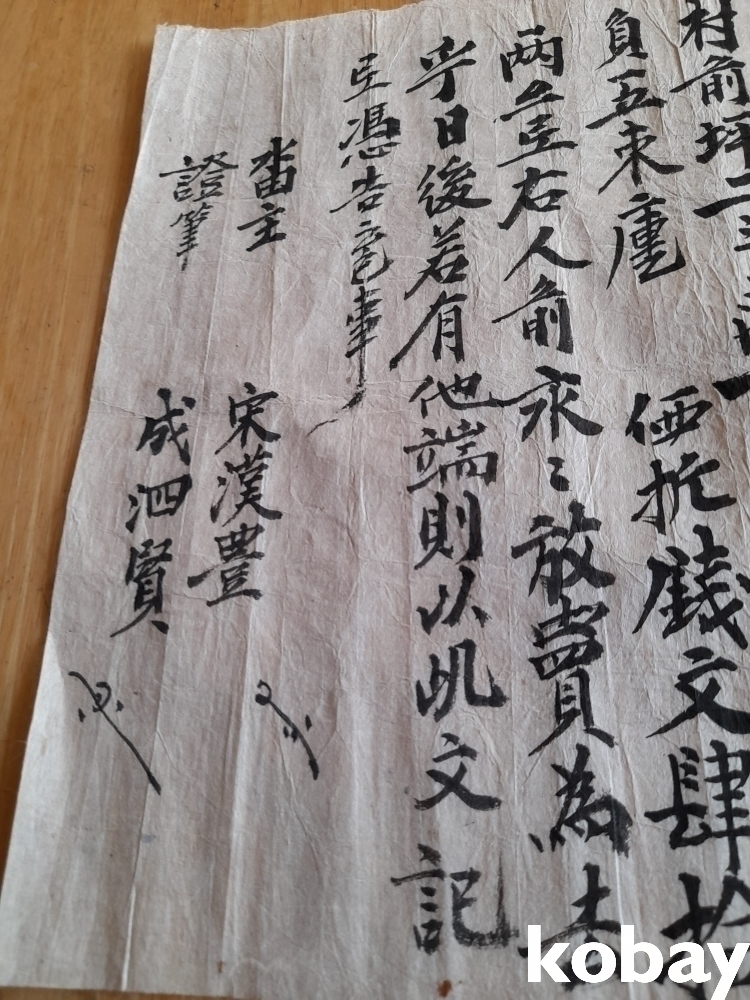 村前坪二
負五束 価折錢文肆拾
两 右人前永〻放賣為去
乎日後若有他端則以此文記
憑告 事
畓主 宋漢豊
證筆 成泗賢
kobay